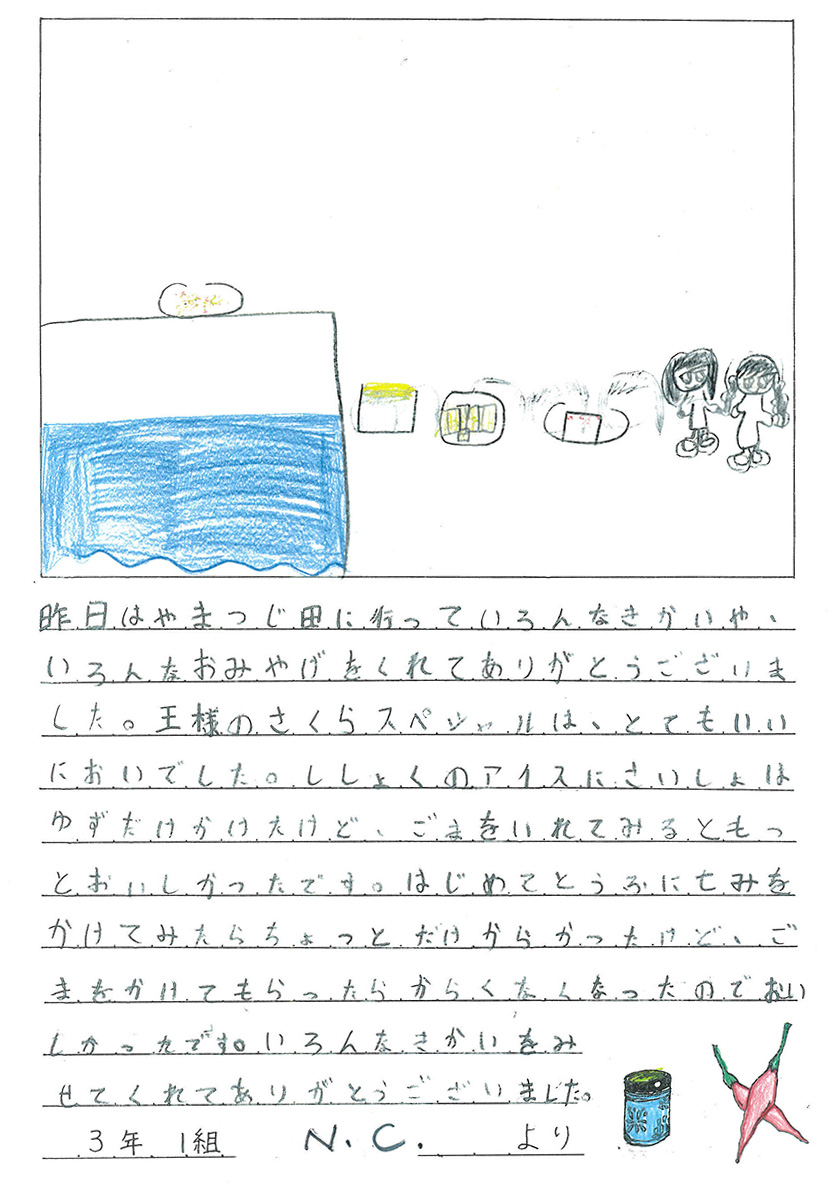 昨日はやまつじ田に行っていろんなきかいや、
いろんなおみやげをくれてありがとうございま
した。王様のさくらスペシャルは、とてもいい
においでした。ししょくのアイスにさいしょは
ゆずだけかけたけど、ごまをいれてみるともっ
とおいしかったです。はじめてとうふに七みを
かけてみたらちょっとだけからかったけど、ご
まをかけてもらったらからくなくなったのでおい
しかったです。いろんなきかいをみ
せてくれてありがとうございました。
3年 1組 N.C. より